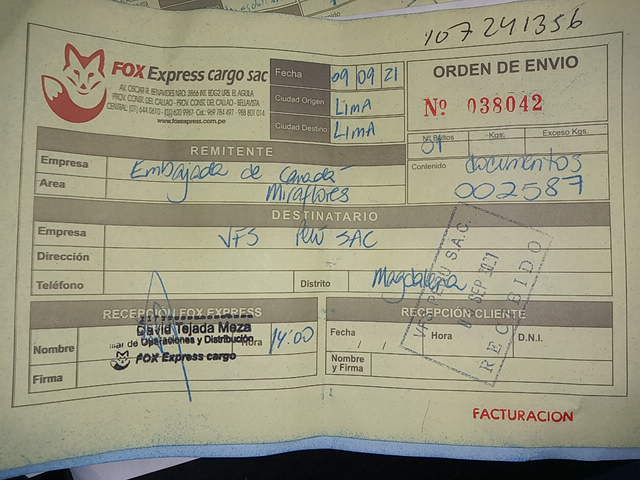 107241356
FOX Express cargo sac
AV. OSCAR R. BENAVIDES NRO. 3866 INT. EDG2 URB. EL AGUILA
PROV. CONST. DEL CALLAO - PROV. CONST. DEL CALLAO - BELLAVISTA
www.foxexpress.com.pe
Fecha 09 09 21
Ciudad Origen LIMA
Ciudad Destino LIMA
ORDEN DE ENVIO
Nº 038042
Nº Bultos Kgs. Exceso Kgs.
01
Contenido documentos
002587
REMITENTE
Empresa Embajada de Canadá
Area Miraflores
DESTINATARIO
Empresa VFS Perú SAC
Dirección
Teléfono Distrito Magdalena
VFS PERU S.A.C.
SEP 2021
RECIBIDO
RECEPCIÓN FOX EXPRESS
David Tejada Meza
de Operaciones y Distribución
FOX Express cargo
Nombre Hora 14:00
Firma
RECEPCIÓN CLIENTE
Fecha / / Hora D.N.I.
Nombre y Firma
FACTURACION